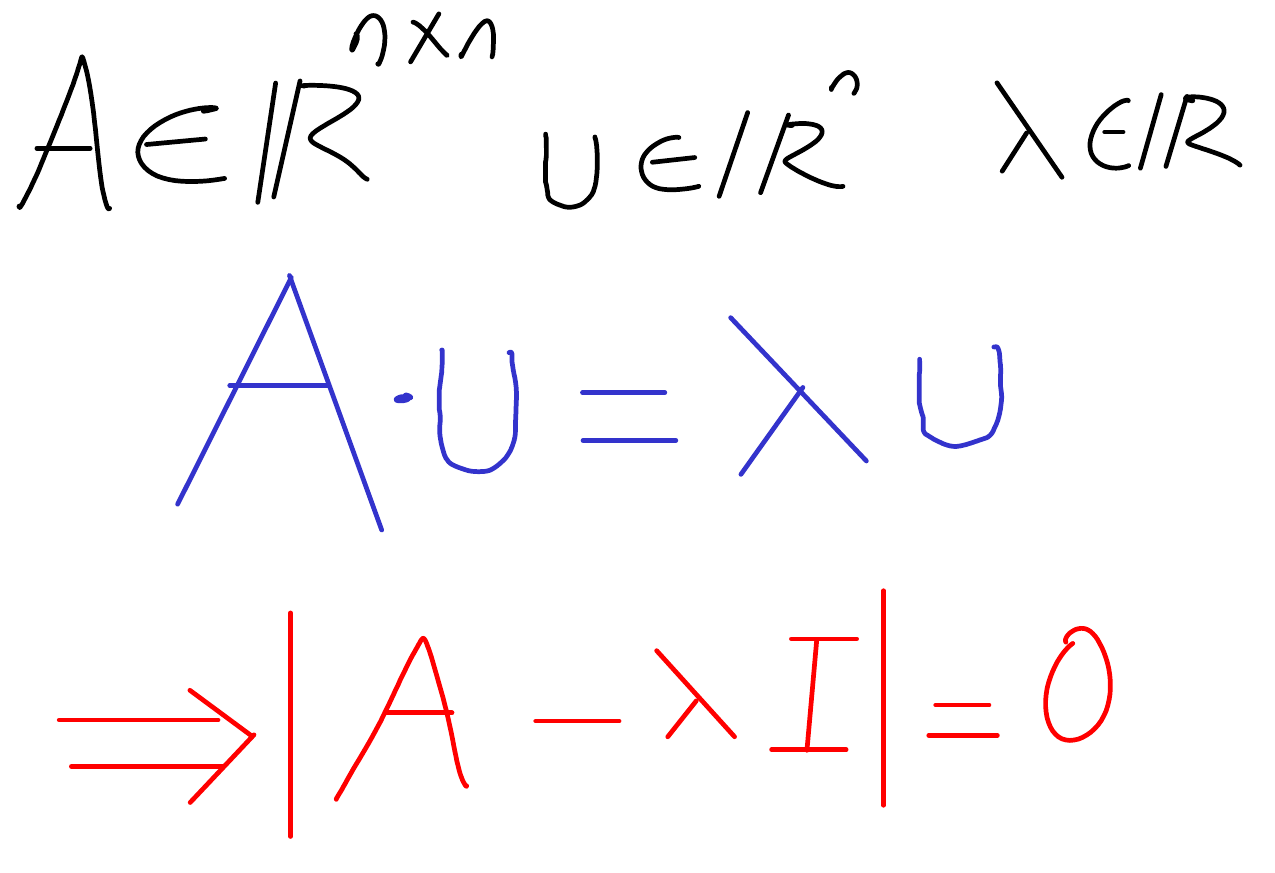 A ∈ ℝⁿˣⁿ U ∈ ℝⁿ λ ∈ ℝ
A · U = λ U
⇒ | A − λ I | = 0